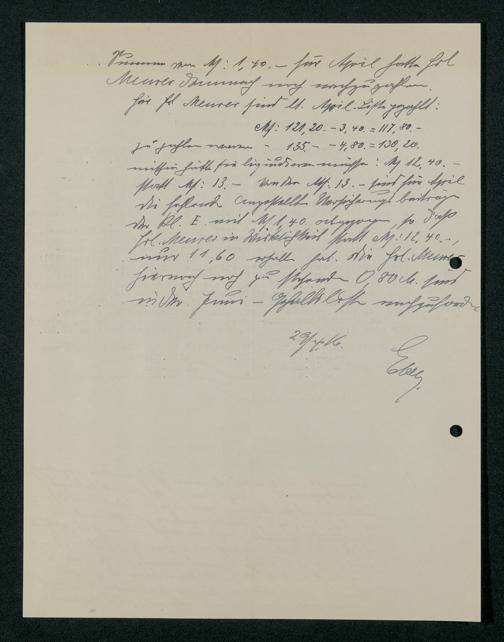 Summe von M: 1,40.- für April hatte Frl.
Meurer demnach noch nachzuzahlen.
Für Fr. Meurer sind lt. April-Liste gezahlt:
M: 121,20.- 3,40. = 117,80.-
zu zahlen waren - 135.- - 4,80. = 130,20.
mithin hätte sie liquidieren müssen: M 12,40.-
statt M: 13.- Von den M: 13.- sind für April
die fehlenden Angestellten Versicherungsbeiträge
der Kl. E. mit M 1,40 abgezogen, so daß
Frl. Meurer in Wirklichkeit statt M: 12,40.-,
nur 11.60 erhalten hat. Die Frl. Meurer
hiernach noch zu stehenden 0,80 M. sind
in der Juni - Gehaltsliste
29/5.16.